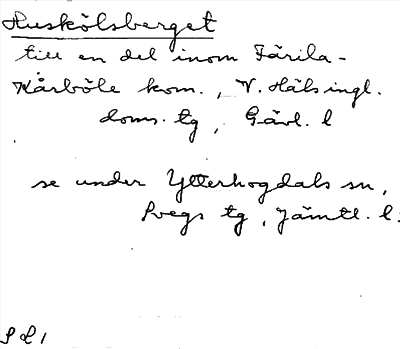 Huskölsberget
till en del inom Färila-
Kårböle kom., V. Hälsingl.
doms. tg, Gävl. l
se under Ytterhogdals sn,
Svegs tg, Jämtl. l.